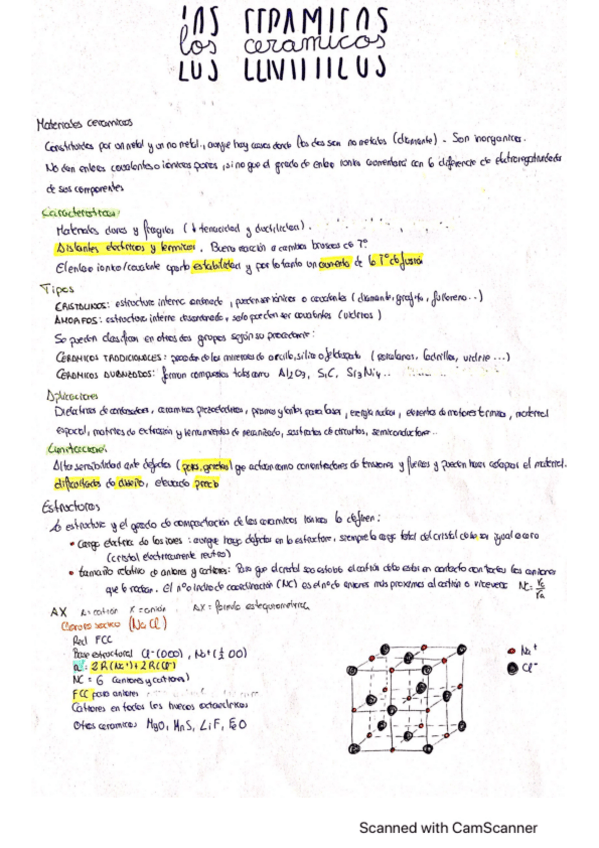 los ceramicos
Materiales ceramicos
Constituidos por un metal y un no metal, aunque hay casos donde los dos son no metales (diamante). Son inorganicos.
No dan enlaces covalentes o iónicos puros, sino que el grado de enlace ionico aumentará con la diferencia de electronegatividades
de sus componentes
Características:
Materiales duros y fragiles (↓ tenacidad y ductilidad).
Aislantes electricos y termicos. Buena reacción a cambios bruscos de Tª
El enlace ionico/covalente aporta estabilidad y por lo tanto un aumento de la Tª de fusión
Tipos
CRISTALINOS: estructura interna ordenada, pueden ser iónicos o covalentes (diamante, grafito, fullereno...)
AMORFOS: estructura interna desordenada, solo pueden ser covalentes (vidrios)
Se pueden clasificar en otros dos grupos según su procedencia:
CERAMICOS TRADICIONALES: proceden de los minerales de arcilla, silice o feldespato (porcelanas, ladrillos, vidrio...)
CERAMICOS AVANZADOS: forman compuestos tales como Al2O3, SiC, Si3N4...
Aplicaciones
Dielectricos de condensadores, ceramicas piezoelectricas, prismas y lentes para laser, energia nuclear, elementos de motores termicos, material
espacial, matrices de extrusión y herramientas de mecanizado, sustratos de circuitos, semiconductores...
Limitaciones
Alta sensibilidad ante defectos (poros, grietas) que actuan como concentradores de tensiones y fuerzas y pueden hacer colapsar el material.
dificultades de diseño, elevado precio
Estructuras
La estructura y el grado de compactación de los ceramicos ionicos la definen:
• Carga electrica de los iones: aunque haya defectos en la estructura, siempre la carga total del cristal debe ser igual a cero
(cristal electricamente neutro)
• tamaño relativo de aniones y cationes: Para que el cristal sea estable el catión debe estar en contacto con todos los aniones
que lo rodean. El nº o indice de coordinación (NC) es el nº de aniones más proximos al catión o viceversa NC = rc/ra
AX A = catión X = anión AX = formula estequiometrica
Cloruro sodico (NaCl)
Red FCC
Base estructural Cl⁻(000), Na⁺(½00)
a = 2R(Na⁺)+2R(Cl⁻)
NC = 6 (aniones y cationes)
FCC para aniones
Cationes en todos los huecos octaedricos
Otros ceramicos MgO, MnS, LiF, FeO
• Na⁺
• Cl⁻
Scanned with CamScanner